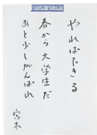 やればできる
春から大学生だ
あと少しがんばれ
宮本